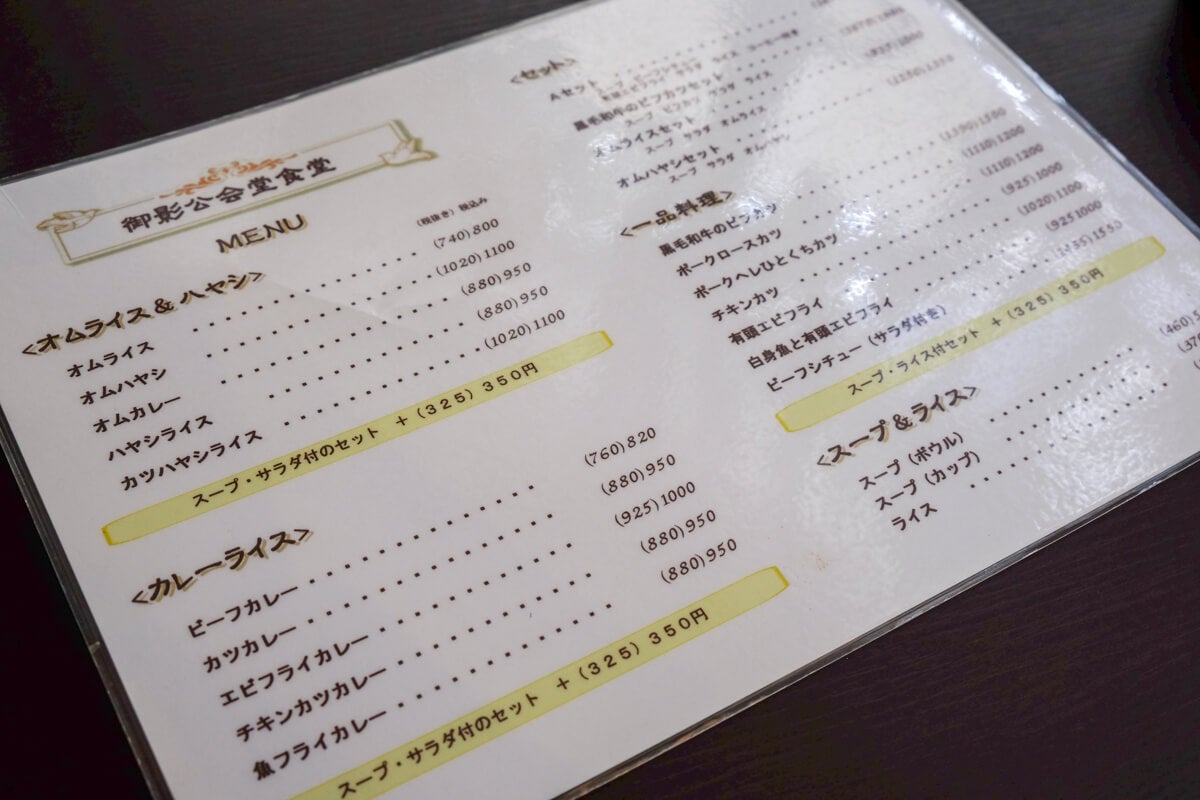 御影公会堂食堂
MENU
(税抜き) 税込み
<オムライス&ハヤシ>
オムライス (740) 800
オムハヤシ (1020) 1100
オムカレー (880) 950
ハヤシライス (880) 950
カツハヤシライス (1020) 1100
スープ・サラダ付のセット +(325) 350円
<カレーライス>
ビーフカレー (760) 820
カツカレー (880) 950
エビフライカレー (925) 1000
チキンカツカレー (880) 950
魚フライカレー (880) 950
スープ・サラダ付のセット +(325) 350円
<セット>
Aセット
黒毛和牛のビフカツセット
スープ ビフカツ サラダ ライス
オムライスセット
スープ サラダ オムライス
オムハヤシセット
スープ サラダ オムハヤシ
<一品料理>
黒毛和牛のビフカツ (1390) 1500
ポークロースカツ (1110) 1200
ポークヘレひとくちカツ (1110) 1200
チキンカツ (925) 1000
有頭エビフライ (1020) 1100
白身魚と有頭エビフライ (925) 1000
ビーフシチュー (サラダ付き) 1550
スープ・ライス付セット +(325) 350円
<スープ&ライス>
スープ (ボウル) (460)
スープ (カップ)
ライス